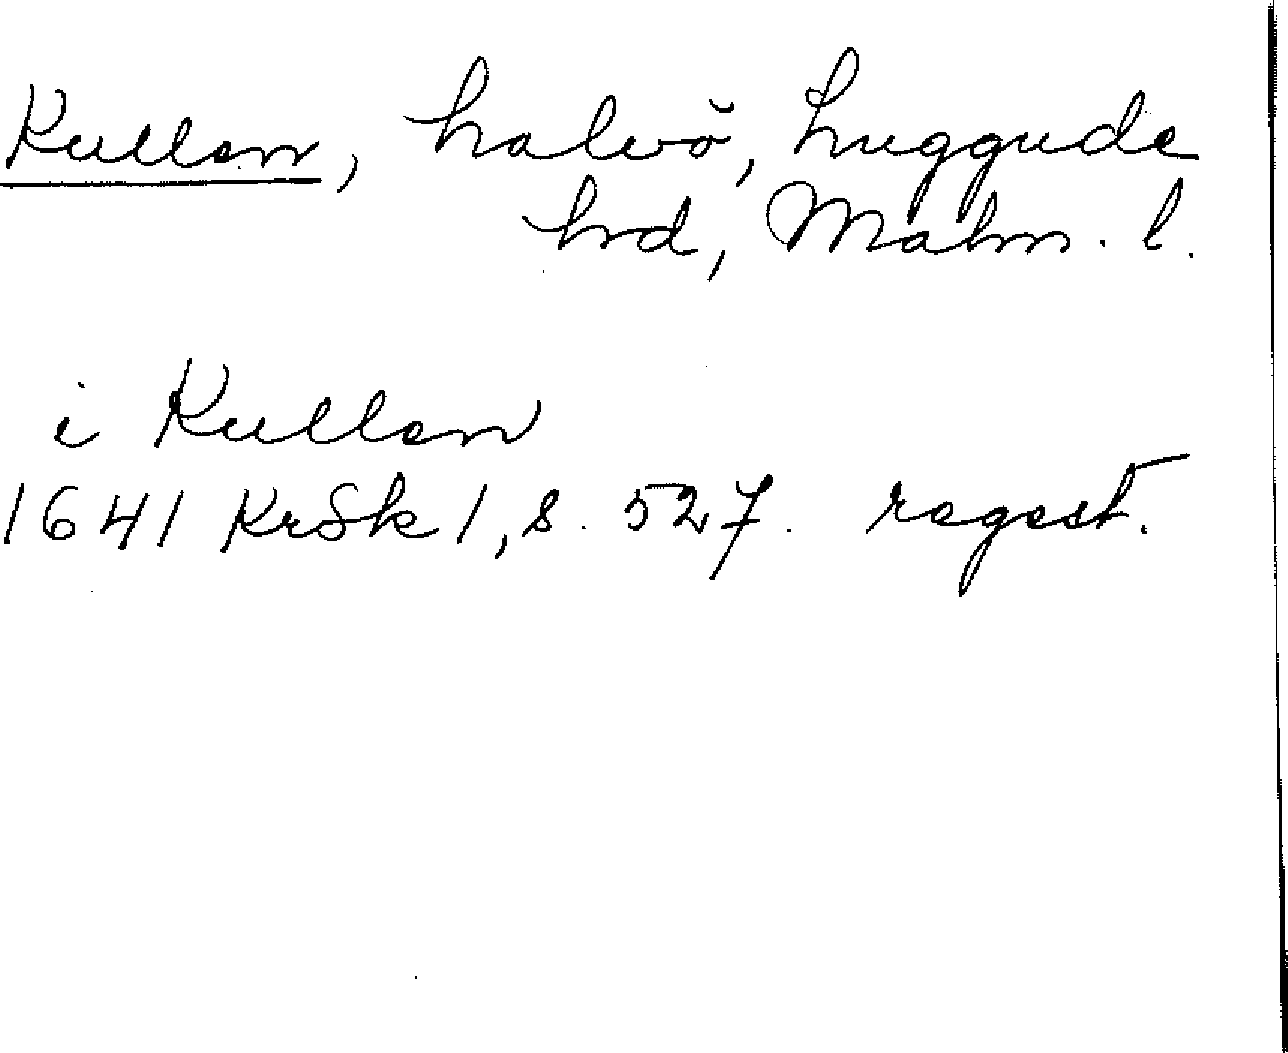 Kullen, halvö, Luggude
hrd, Malm. l.
i Kullen
1641 KrSk 1, s. 527. regest.